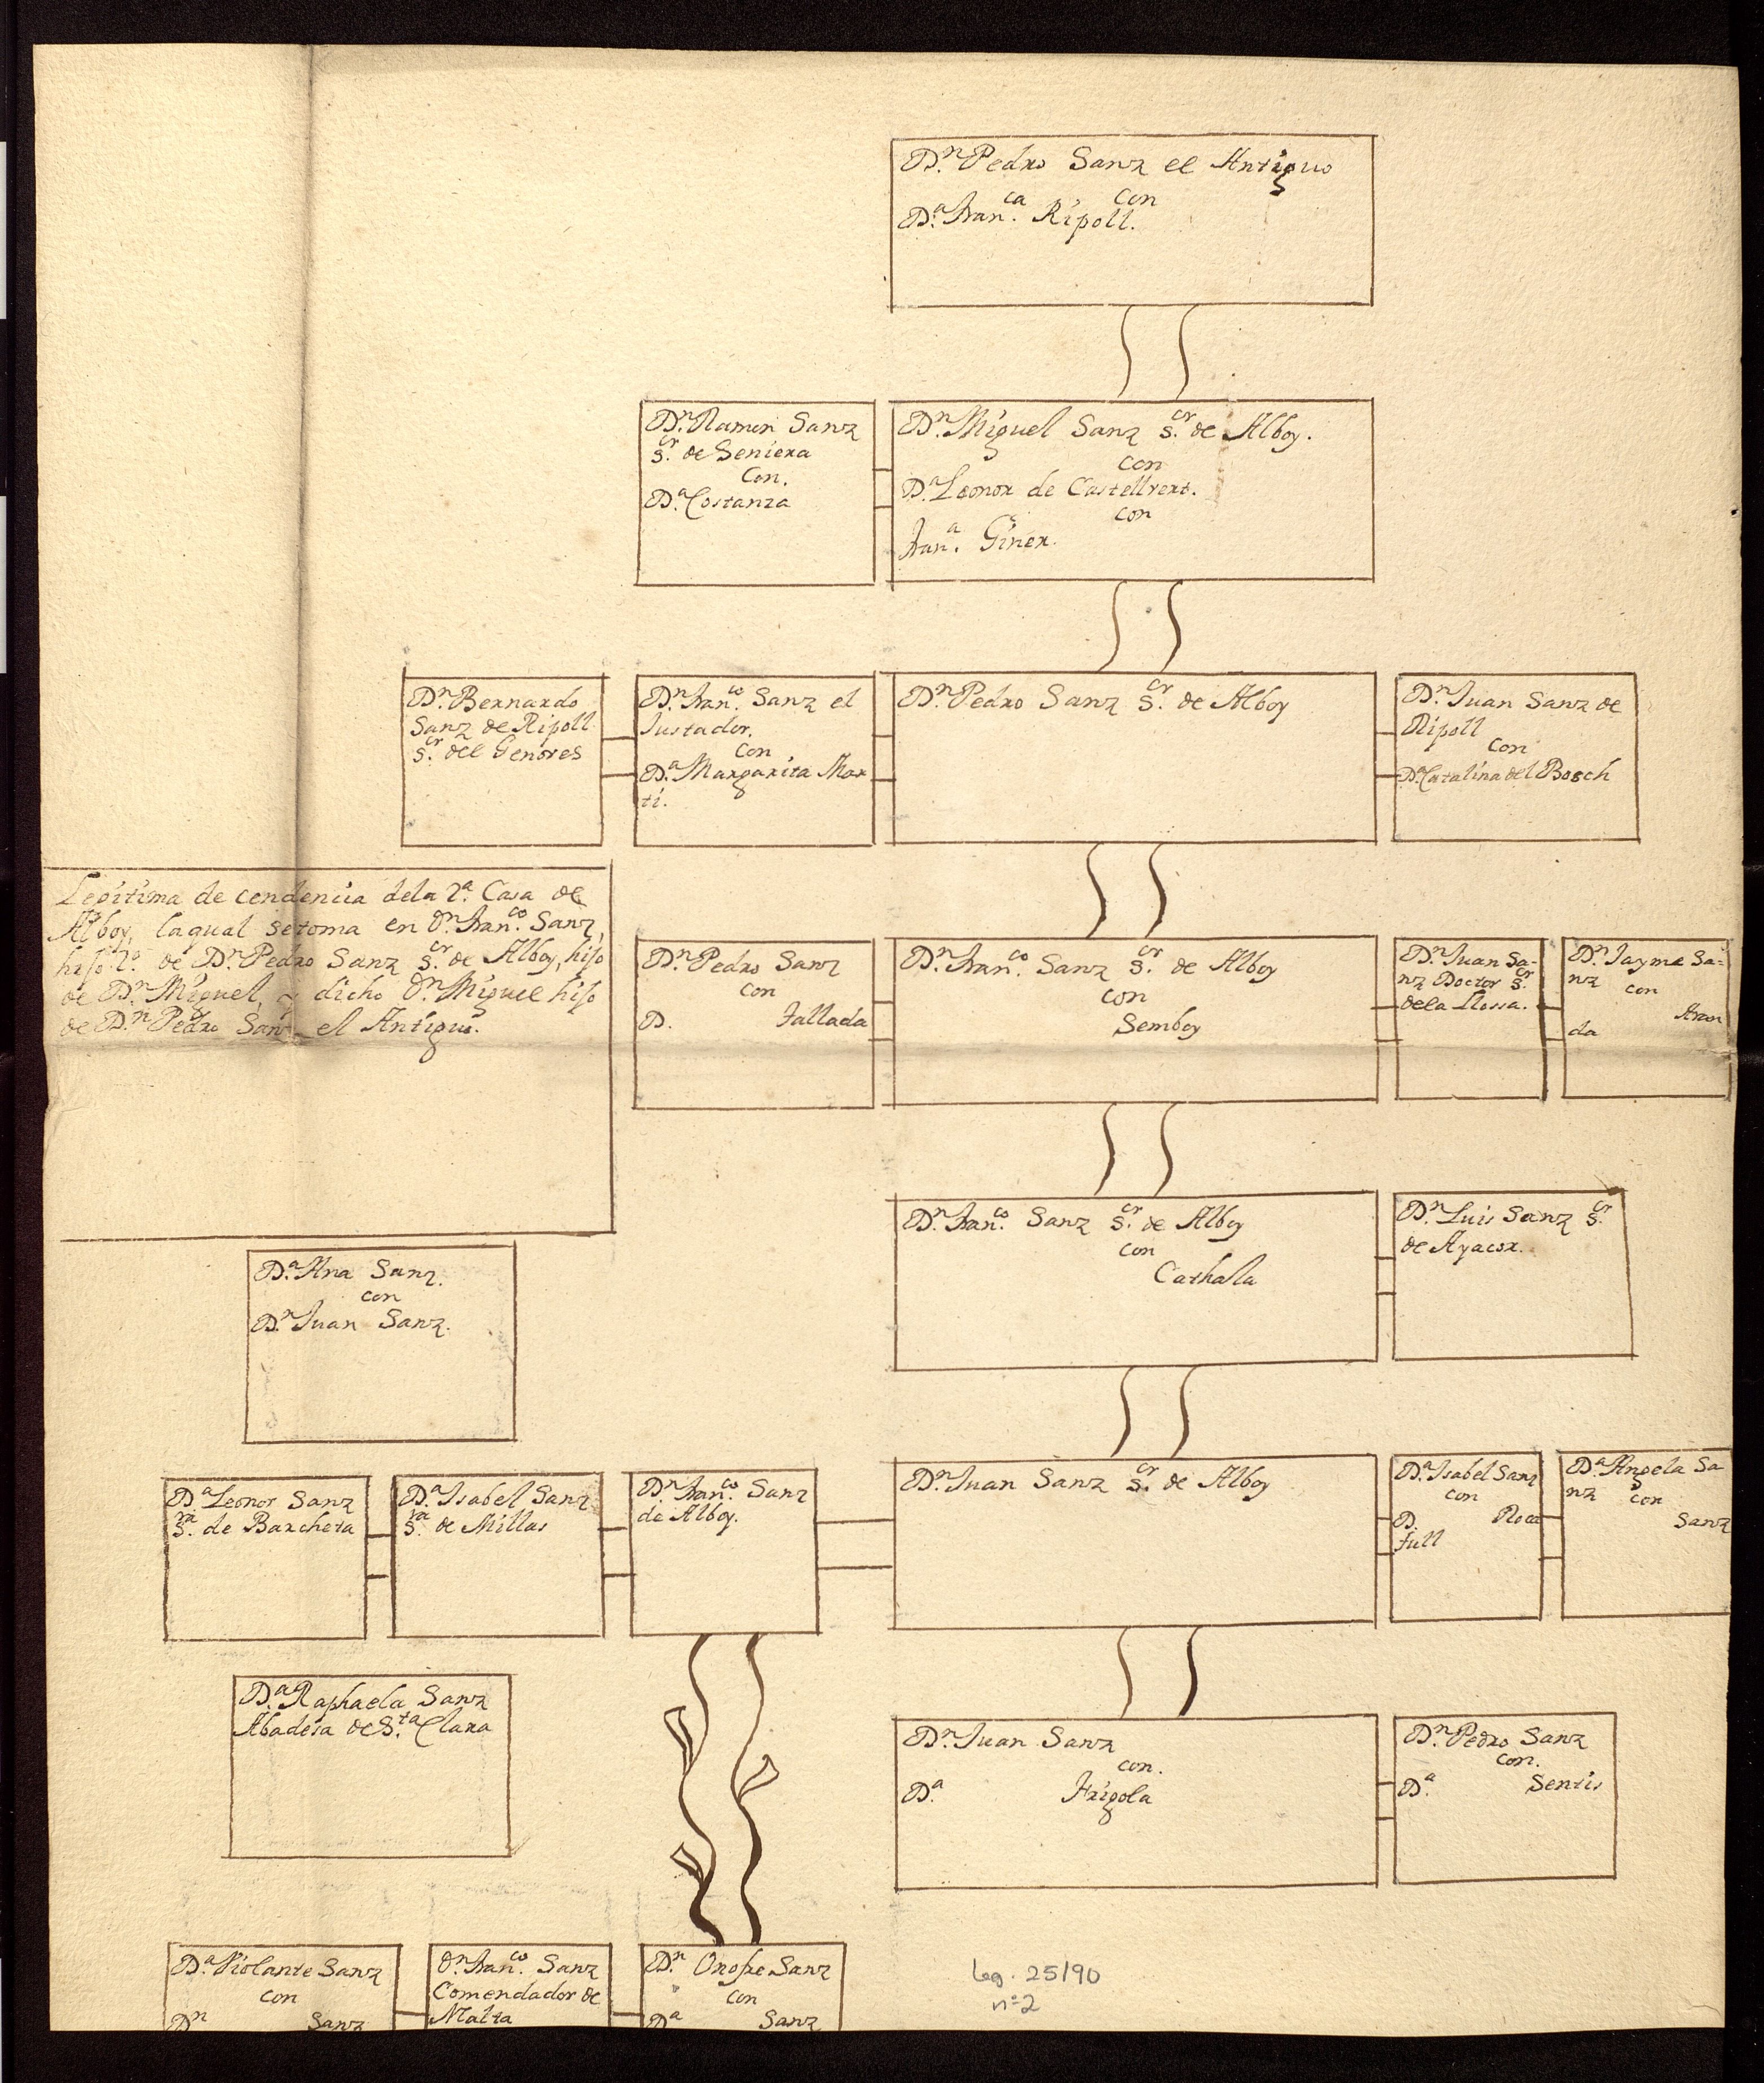 Dn. Pedro Sanz el Antiguo
con
Da. Franca. Ripoll.
Dn. Ramon Sanz
sr. de Seniera
Con.
Da. Costanza
Dn. Miguel Sanz sr. de Alboy.
con
Da. Leonor de Castellvert.
con
Frana. Giner.
Dn. Bernardo
Sanz de Ripoll
sr. del Genoves
Dn. Franco. Sanz el
Justador.
Con
Da. Margarita Mar
ti.
Dn. Pedro Sanz sr. de Alboy
Dn. Juan Sanz de
Ripoll
Con
Da. Catalina del Bosch
Legitima decendencia dela 2a. Casa de
Alboy, laqual setoma en Dn. Franco. Sanz,
hijo 2o. de Dn. Pedro Sanz sr. de Alboy, hijo
de Dn. Miguel, y dicho Dn. Miguel hijo
de Dn. Pedro Sanz el Antiguo.
Dn. Pedro Sanz
con
D. Fallada
Dn. Franco. Sanz sr. de Alboy
con
Semboy
Dn. Juan Sa-
nz Doctor sr.
dela Llossa.
Dn. Jayme Sa-
nz con
Aran
da
Dn. Franco. Sanz sr. de Alboy
con
Carhala
Dn. Luis Sanz sr.
de Ayacor.
Da. Ana Sanz.
con
Dn. Juan Sanz.
Da. Leonor Sanz
sra. de Barcheta
Da. Isabel Sanz
sra. de Millas
Dn. Franco. Sanz
de Alboy.
Dn. Juan Sanz sr. de Alboy
Da. Isabel Sanz
con
D. Roca
full
Da. Angela Sa
nz con
Sanz
Da. Raphaela Sanz
Abadesa de Sta. Clara
Dn. Juan Sanz
con.
Da. Frigola
Dn. Pedro Sanz
con.
Da. Sentis
Da. Violante Sanz
con
Dn Sanz
Dn. Franco. Sanz
Comendador de
Malta
Dn. Onofre Sanz
con
Da Sanz
Leg. 25/90
nº2